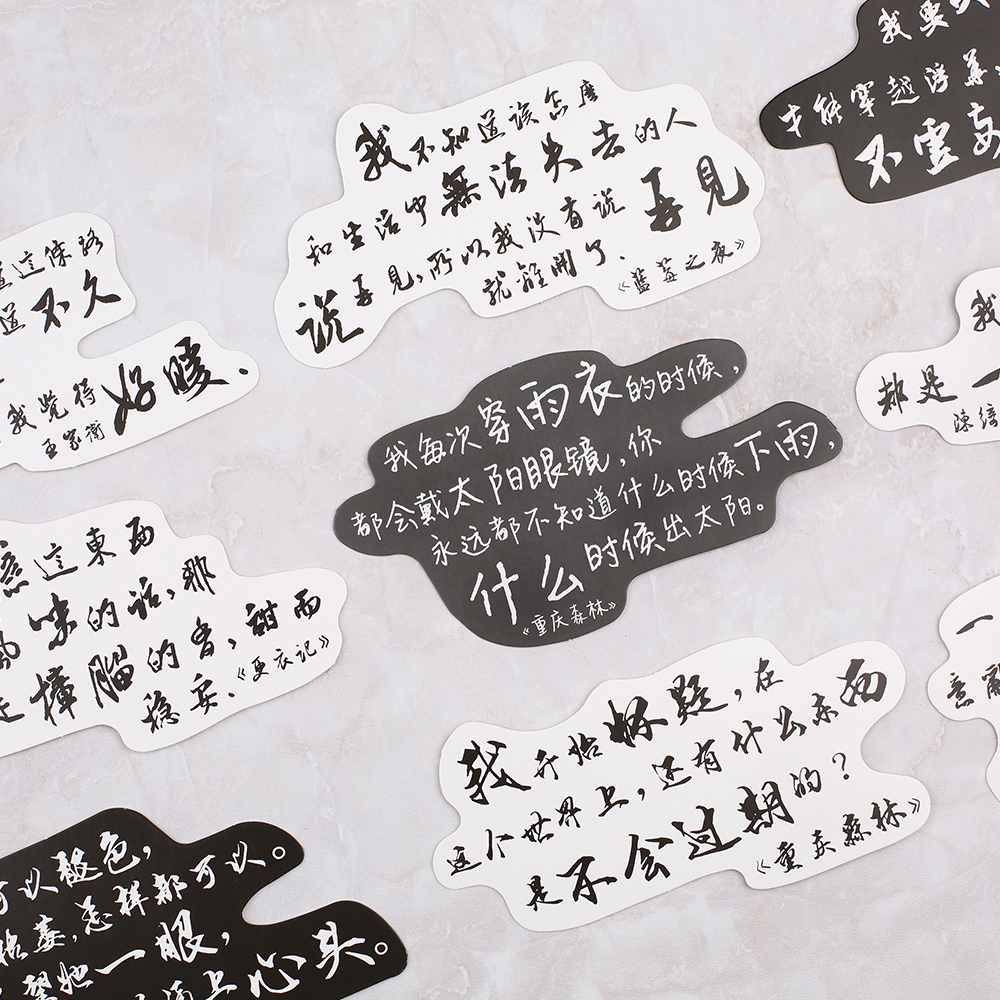 我不知道该怎麼
和生活中無法失去的人
说再見,所以我没有说再見
就離開了.
《藍莓之夜》
我要
才能穿越
不虚妄
這條路
道不久
我覺得好暖.
王家衛
我每次穿雨衣的时候,
都会戴太阳眼镜,你
永远都不知道什么时候下雨,
什么时候出太阳。
《重庆森林》
我
都是一
這東西
味的话,那
撞腦的香,甜而
稳妥、
《更衣记》
我开始怀疑,在
这个世界上,还有什么东西
是不会过期的?
《重庆森林》
一
意
可以褪色,
枯萎,怎样都可以。
她一眼,
上心头。